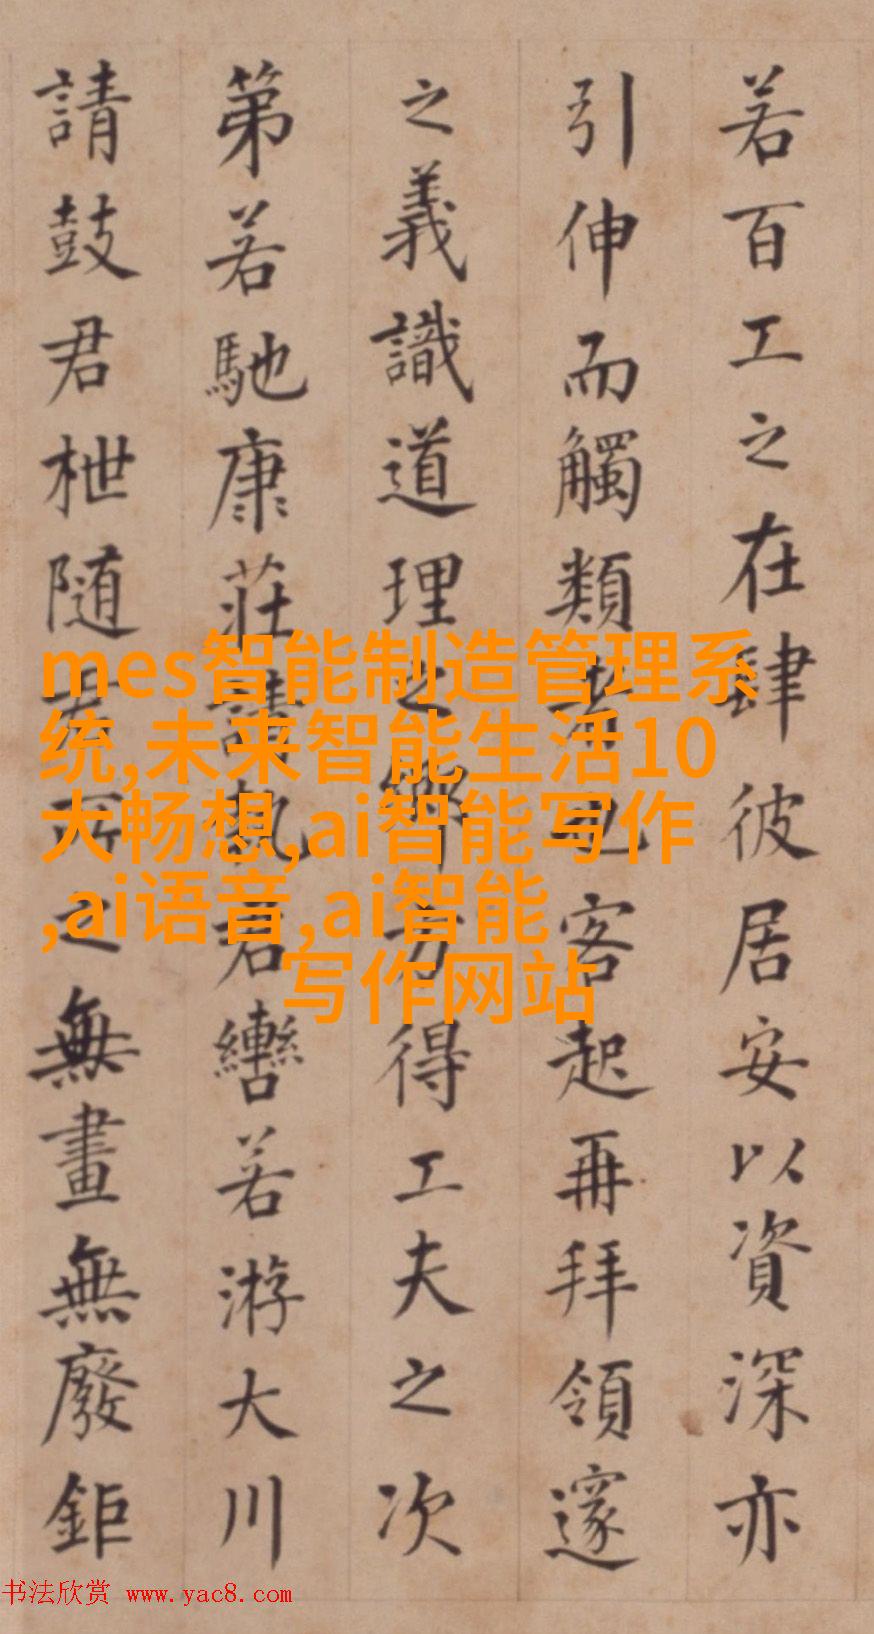 若百工之在肆彼居安以資深亦
引伸而觸類者也客起再拜領邃
之義識道理之鄉方得工夫之次
第若馳康莊請執君轡若游大川
請鼓君枻随君所之無畫無廢鉅
mes智能制造管理系
统,未来智能生活10
大畅想,ai智能写作
,ai语音,ai智能
写作网站
书法欣赏 www.yac8.com